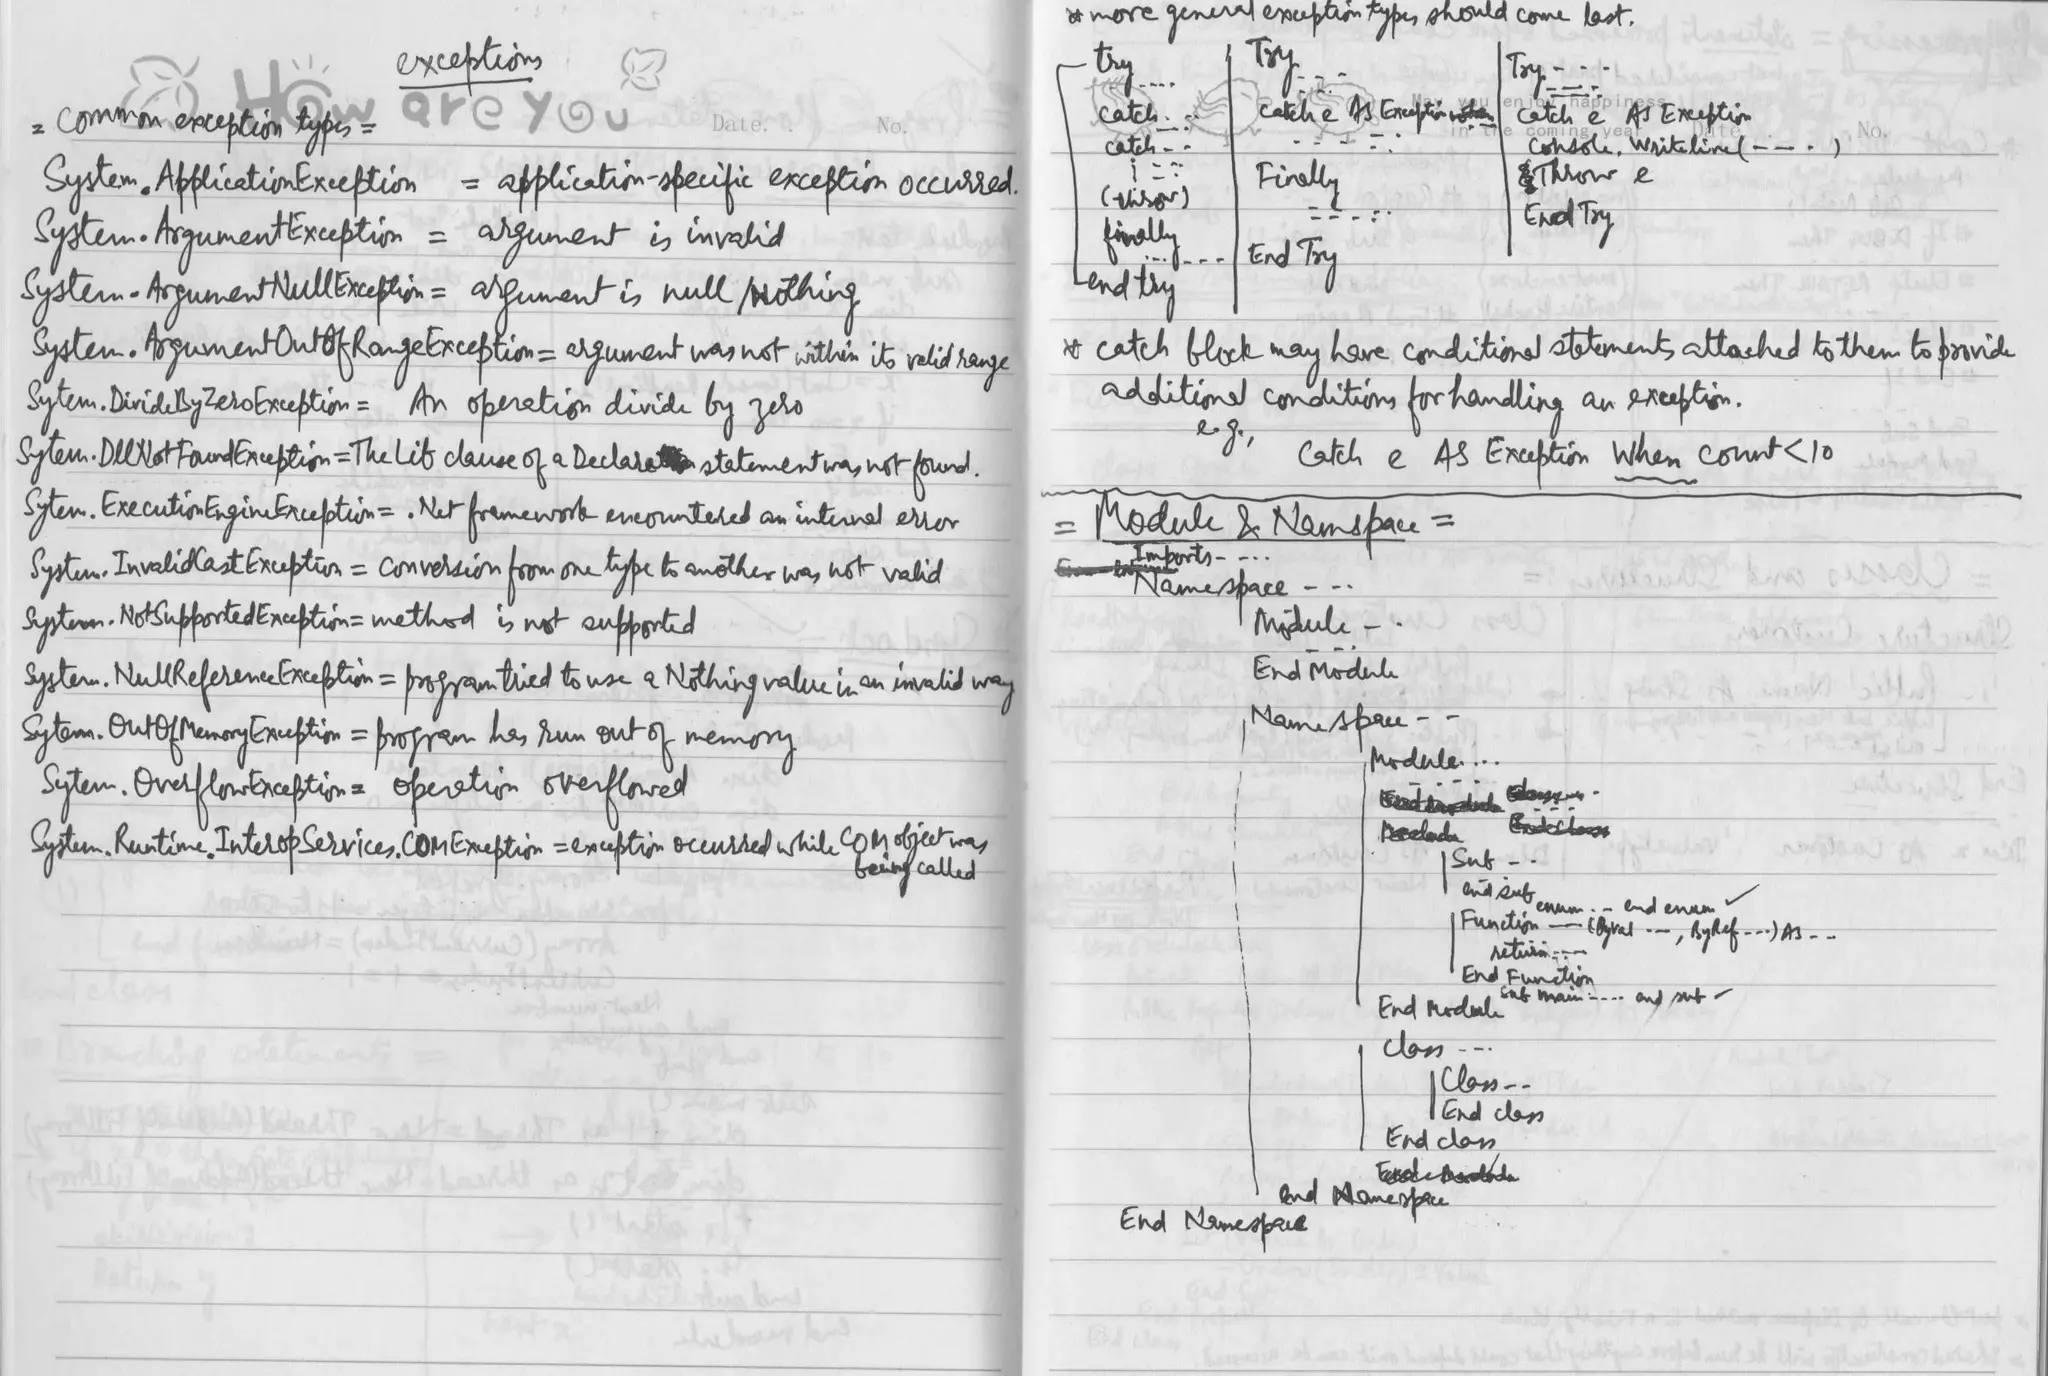 exceptions
How are you
Date. . No.
= Common exception types =
System.ApplicationException = application-specific exception occurred.
System.ArgumentException = argument is invalid
System.ArgumentNullException = argument is null/Nothing
System.ArgumentOutOfRangeException = argument was not within its valid range
Sytem.DivideByZeroException = An operation divide by zero
Sytem.DllNotFoundException = The Lib clause of a Declare statement was not found.
Sytem.ExecutionEngineException = .Net framework encountered an internal error
System.InvalidCastException = conversion from one type to another was not valid
System.NotSupportedException = method is not supported
System.NullReferenceException = program tried to use a Nothing value in an invalid way
Sytem.OutOfMemoryException = program has run out of memory
Sytem.OverflowException = operation overflowed
System.Runtime.InteropServices.COMException = exception occurred while COM object was
being called
* more general exception types should come last.
May you enjoy happiness
in the coming year Date No.
try
....
catch. ...
catch - -
(throw)
finally
... ---
end try
Try
- - -
catch e AS Exception when
- - - - -
Finally
- - - - -
End Try
Try - - -
- - - -
catch e AS Exception
console.writeline(- - - .)
Throw e
End Try
* catch block may have conditional statements attached to them to provide
additional conditions for handling an exception.
e.g.,
Catch e AS Exception When count<10
= Module & Namspace =
Imports - ...
Namespace - - -
Module - -
- - -
End Module
Namespace - -
Module....
- - - - -
Sub - - -
end sub
enum... end enum ✓
Function — (Byval ---, ByRef ---) AS - -
return - - -
End Function
sub main - - - - end sub ✓
End Module
Class - - -
Class - -
End class
End class
end Namespace
End Namespace